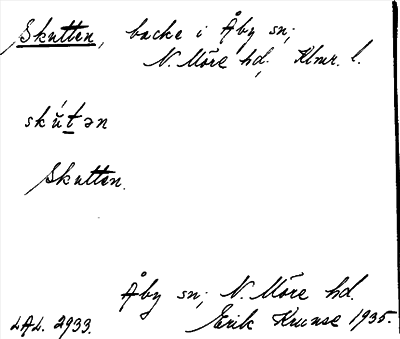 Skutten, backe i Åby sn;
N. Möre hd, Klmr. l.
skŭ́tən
Skutten.
Åby sn; N. Möre hd.
LAL. 2933. Erik Kruuse 1935.